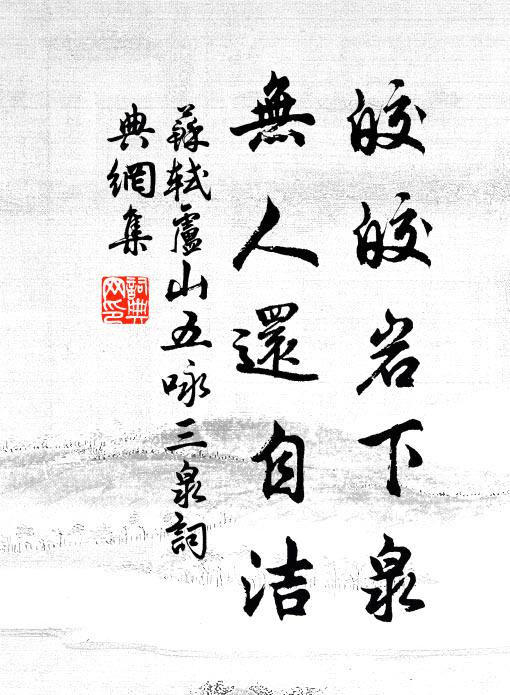 皎皎岩下泉
無人還自洁
蘇軾廬山五咏三泉詞
典網集
詞典网印